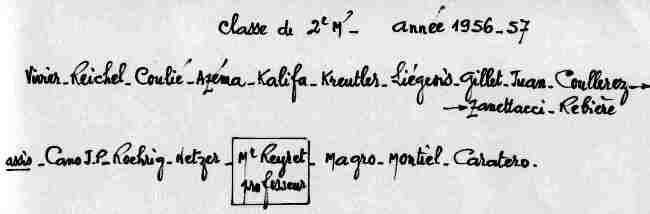 Classe de 2e M' - année 1956-57
Vivier - Reichel - Coulié - Azéma - Kalifa - Kreutler - Liégeois - Gillet - Juan - Coullerez →
→ Zanettacci - Rebière
assis - Cano J.P - Roehrig - Netzer - Mr Reyret - Magro - Montiel - Caratero.
professeur